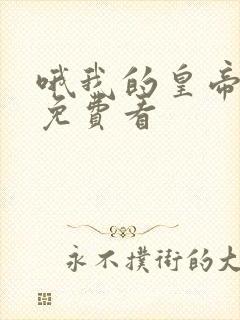 哦我的皇帝
免費看
永不撲街的大